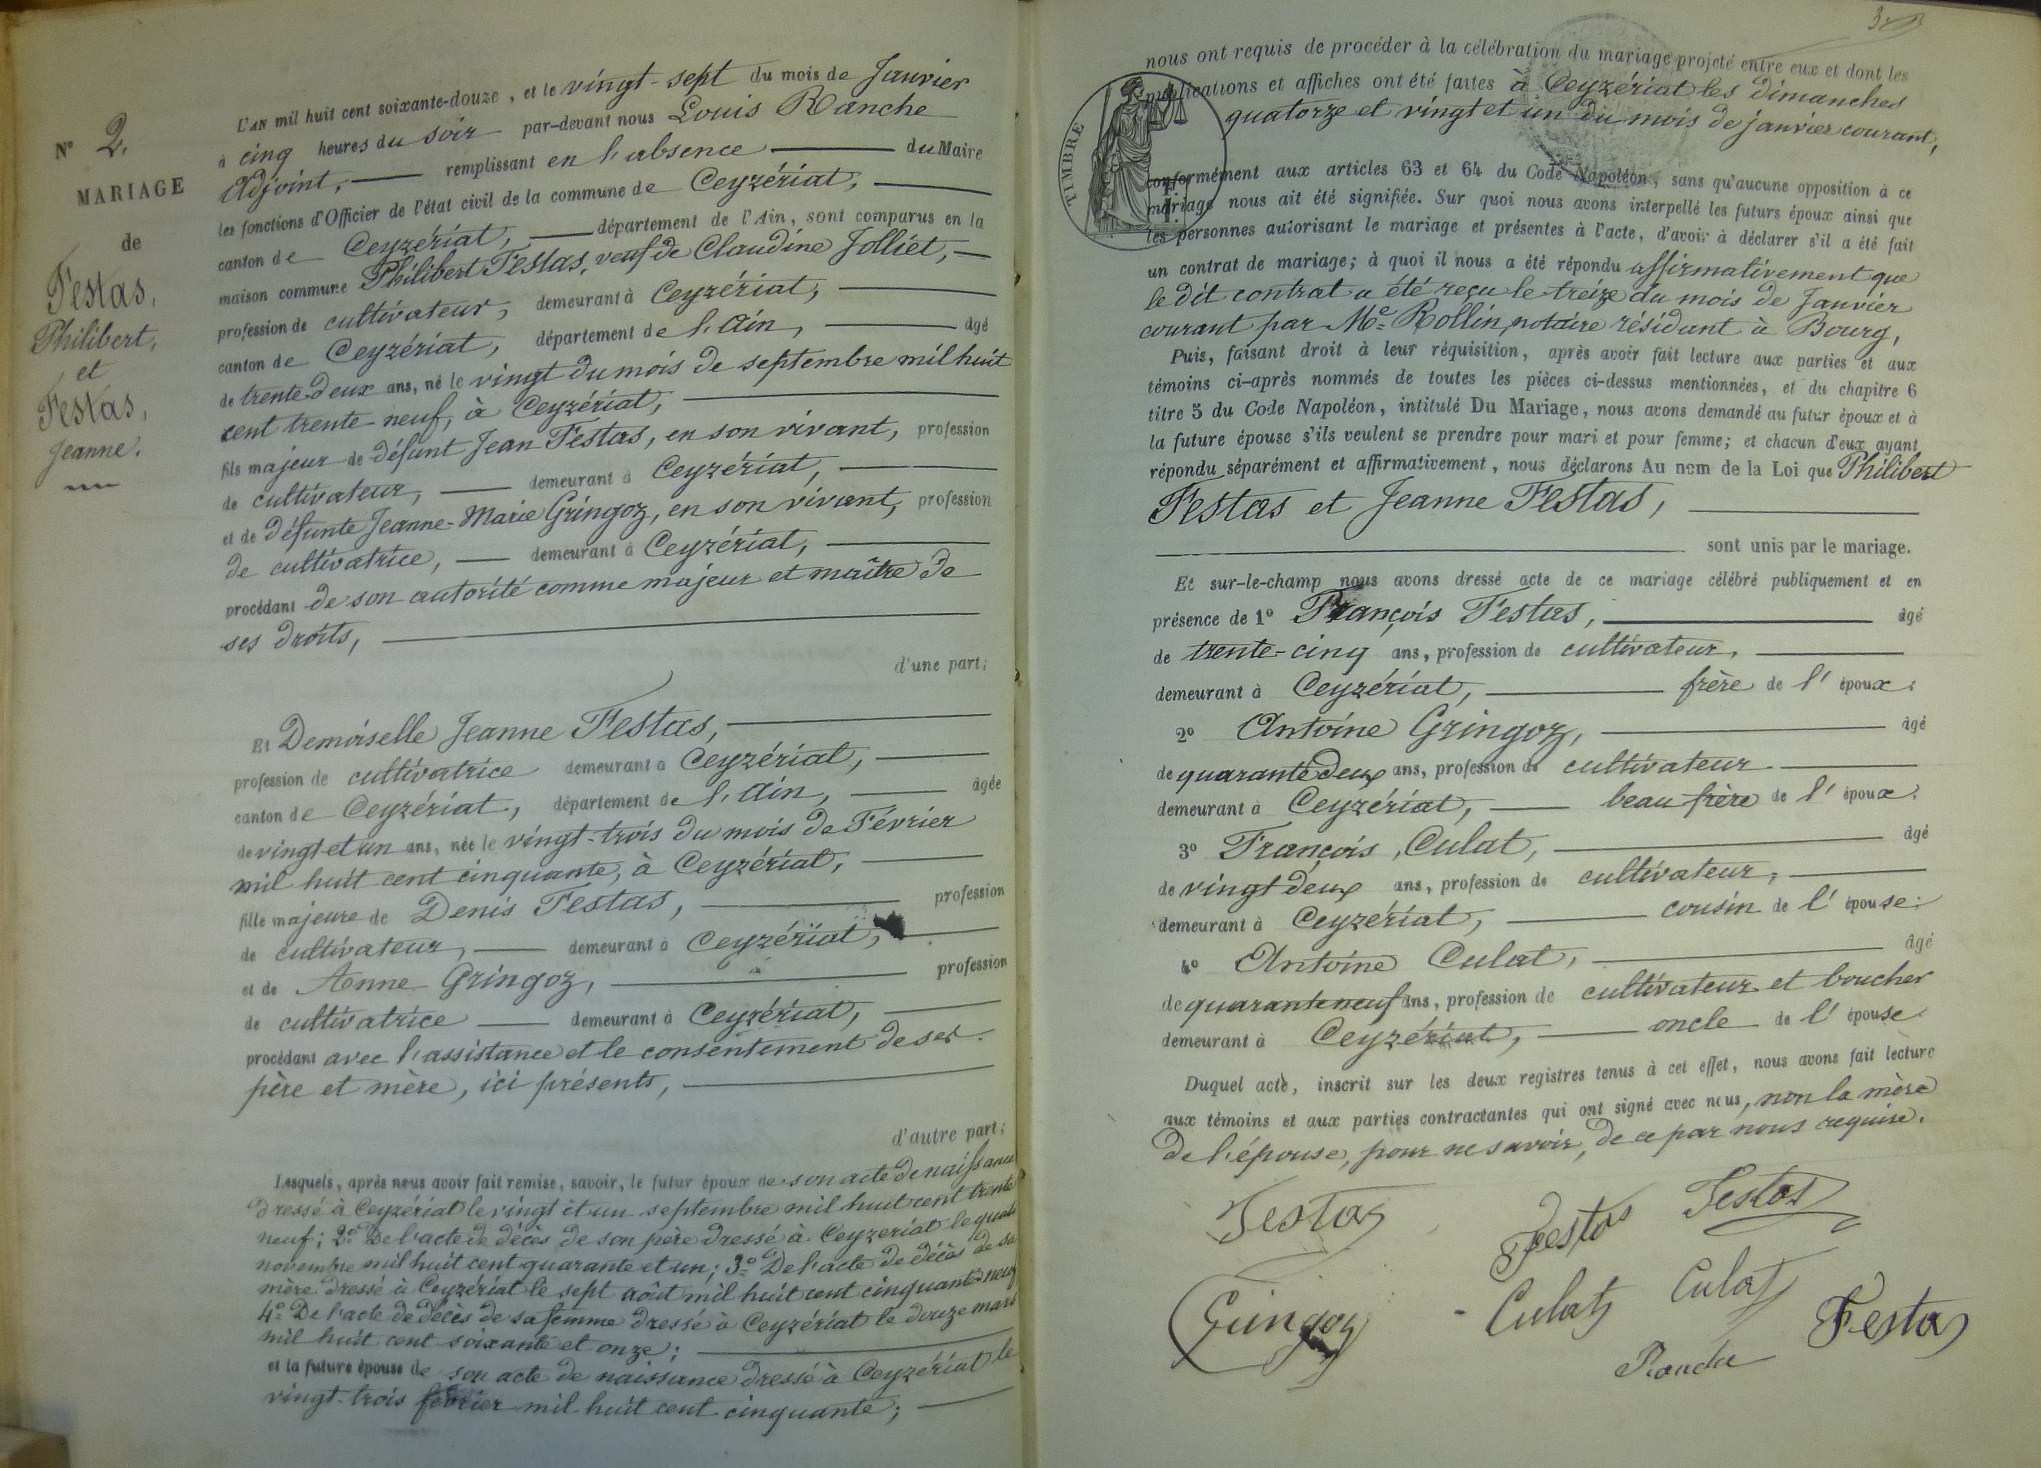 N° 2.
MARIAGE
de
Festas,
Philibert,
et
Festas,
Jeanne.
L'AN mil huit cent soixante-douze, et le vingt-sept du mois de Janvier
à cinq heures du soir par-devant nous Louis Ranche
Adjoint, remplissant en l'absence du Maire
les fonctions d'Officier de l'état civil de la commune de Ceyzériat,
canton de Ceyzériat, département de l'Ain, sont comparus en la
maison commune Philibert Festas, veuf de Claudine Jolliet,
profession de cultivateur, demeurant à Ceyzériat,
canton de Ceyzériat, département de l'Ain, âgé
de trente-deux ans, né le vingt du mois de septembre mil huit
cent trente neuf, à Ceyzériat,
fils majeur de défunt Jean Festas, en son vivant, profession
de cultivateur, demeurant à Ceyzériat,
et de défunte Jeanne-Marie Gringoz, en son vivant, profession
de cultivatrice, demeurant à Ceyzériat,
procédant de son autorité comme majeur et maître de
ses droits,
d'une part;
Et Demoiselle Jeanne Festas,
profession de cultivatrice demeurant à Ceyzériat,
canton de Ceyzériat, département de l'Ain, âgée
de vingt et un ans, née le vingt-trois du mois de Février
mil huit cent cinquante, à Ceyzériat,
fille majeure de Denis Festas, profession
de cultivateur, demeurant à Ceyzériat,
et de Anne Gringoz, profession
de cultivatrice demeurant à Ceyzériat,
procédant avec l'assistance et le consentement de ses
père et mère, ici présents,
d'autre part;
Lesquels, après nous avoir fait remise, savoir, le futur époux de son acte de naissance
dressé à Ceyzériat le vingt et un septembre mil huit cent trente
neuf; 2° De l'acte de décès de son père dressé à Ceyzériat le quatre
novembre mil huit cent quarante et un; 3° De l'acte de décès de sa
mère dressé à Ceyzériat le sept août mil huit cent cinquante neuf
4° De l'acte de décès de sa femme dressé à Ceyzériat le douze mars
mil huit cent soixante et onze;
et la future épouse de son acte de naissance dressé à Ceyzériat le
vingt-trois février mil huit cent cinquante;
nous ont requis de procéder à la célébration du mariage projeté entre eux et dont les
publications et affiches ont été faites à Ceyzériat les dimanches
quatorze et vingt et un du mois de janvier courant,
TIMBRE
conformément aux articles 63 et 64 du Code Napoléon, sans qu'aucune opposition à ce
mariage nous ait été signifiée. Sur quoi nous avons interpellé les futurs époux ainsi que
les personnes autorisant le mariage et présentes à l'acte, d'avoir à déclarer s'il a été fait
un contrat de mariage; à quoi il nous a été répondu affirmativement que
le dit contrat a été reçu le treize du mois de Janvier
courant par Me Rollin notaire résidant à Bourg,
Puis, faisant droit à leur réquisition, après avoir fait lecture aux parties et aux
témoins ci-après nommés de toutes les pièces ci-dessus mentionnées, et du chapitre 6
titre 5 du Code Napoléon, intitulé Du Mariage, nous avons demandé au futur époux et à
la future épouse s'ils veulent se prendre pour mari et pour femme; et chacun d'eux ayant
répondu séparément et affirmativement, nous déclarons Au nom de la Loi que Philibert
Festas et Jeanne Festas,
sont unis par le mariage.
Et sur-le-champ nous avons dressé acte de ce mariage célébré publiquement et en
présence de 1° François Festas, âgé
de trente-cinq ans, profession de cultivateur,
demeurant à Ceyzériat, frère de l'époux;
2° Antoine Gringoz, âgé
de quarante deux ans, profession de cultivateur
demeurant à Ceyzériat, beau frère de l'époux.
3° François Culat, âgé
de vingt deux ans, profession de cultivateur,
demeurant à Ceyzériat, cousin de l'épouse;
4° Antoine Culat, âgé
de quarante neuf ans, profession de cultivateur et boucher
demeurant à Ceyzériat, oncle de l'épouse.
Duquel acte, inscrit sur les deux registres tenus à cet effet, nous avons fait lecture
aux témoins et aux parties contractantes qui ont signé avec nous, non la mère
de l'épouse, pour ne savoir, de ce par nous requise.
Festas Festas Festas
Gringoz Culat Culat Festas
Ranche